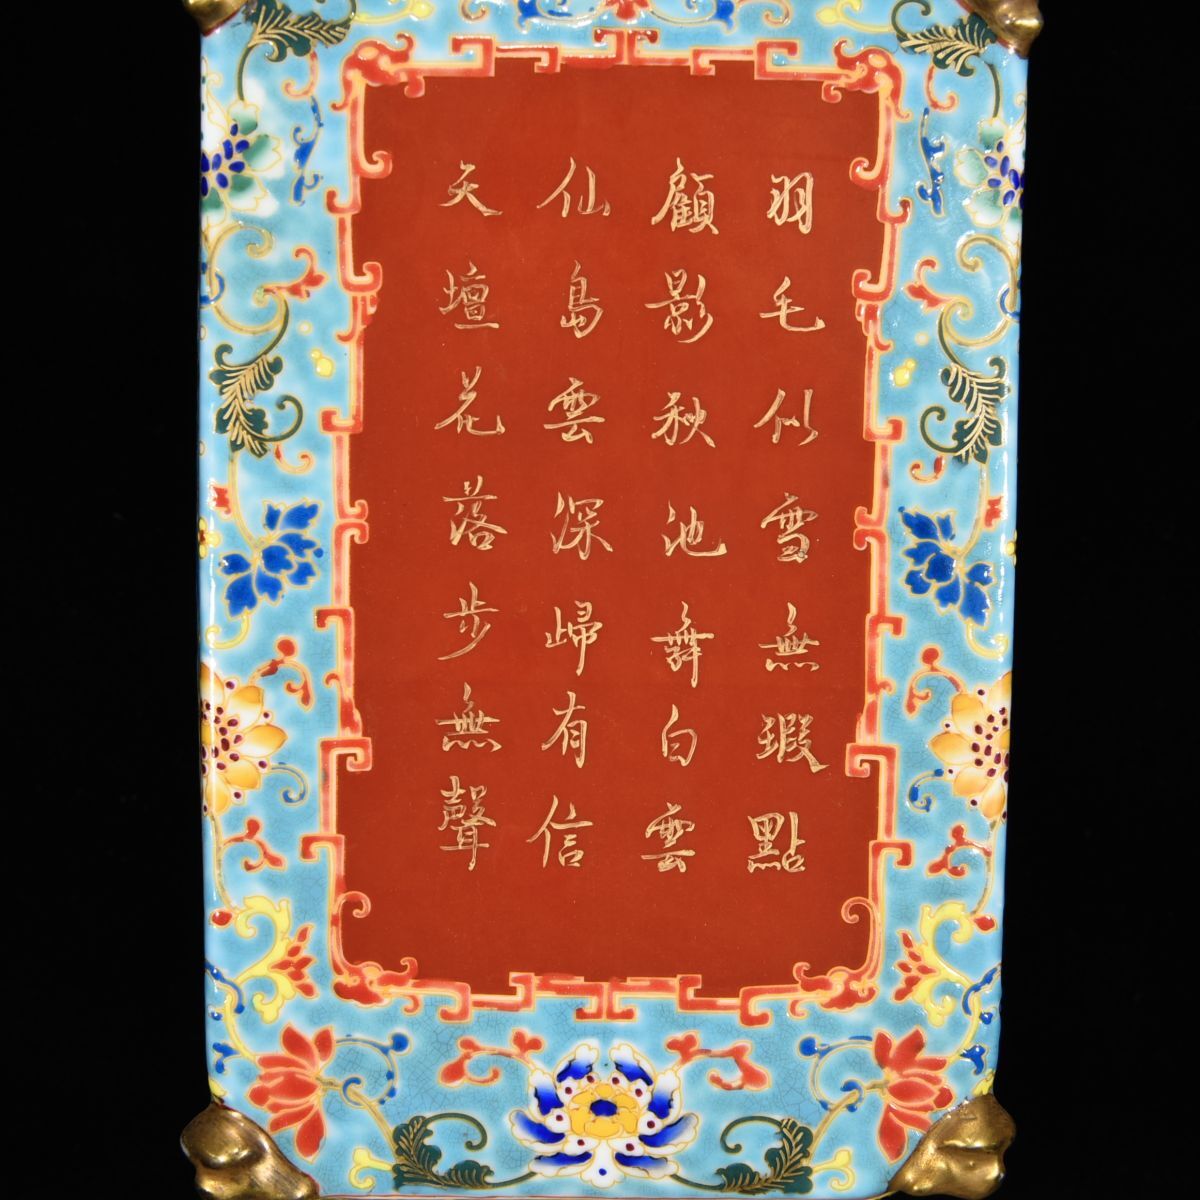 羽毛似雪無瑕點
顧影秋池舞白雲
仙島雲深歸有信
天壇花落步無聲